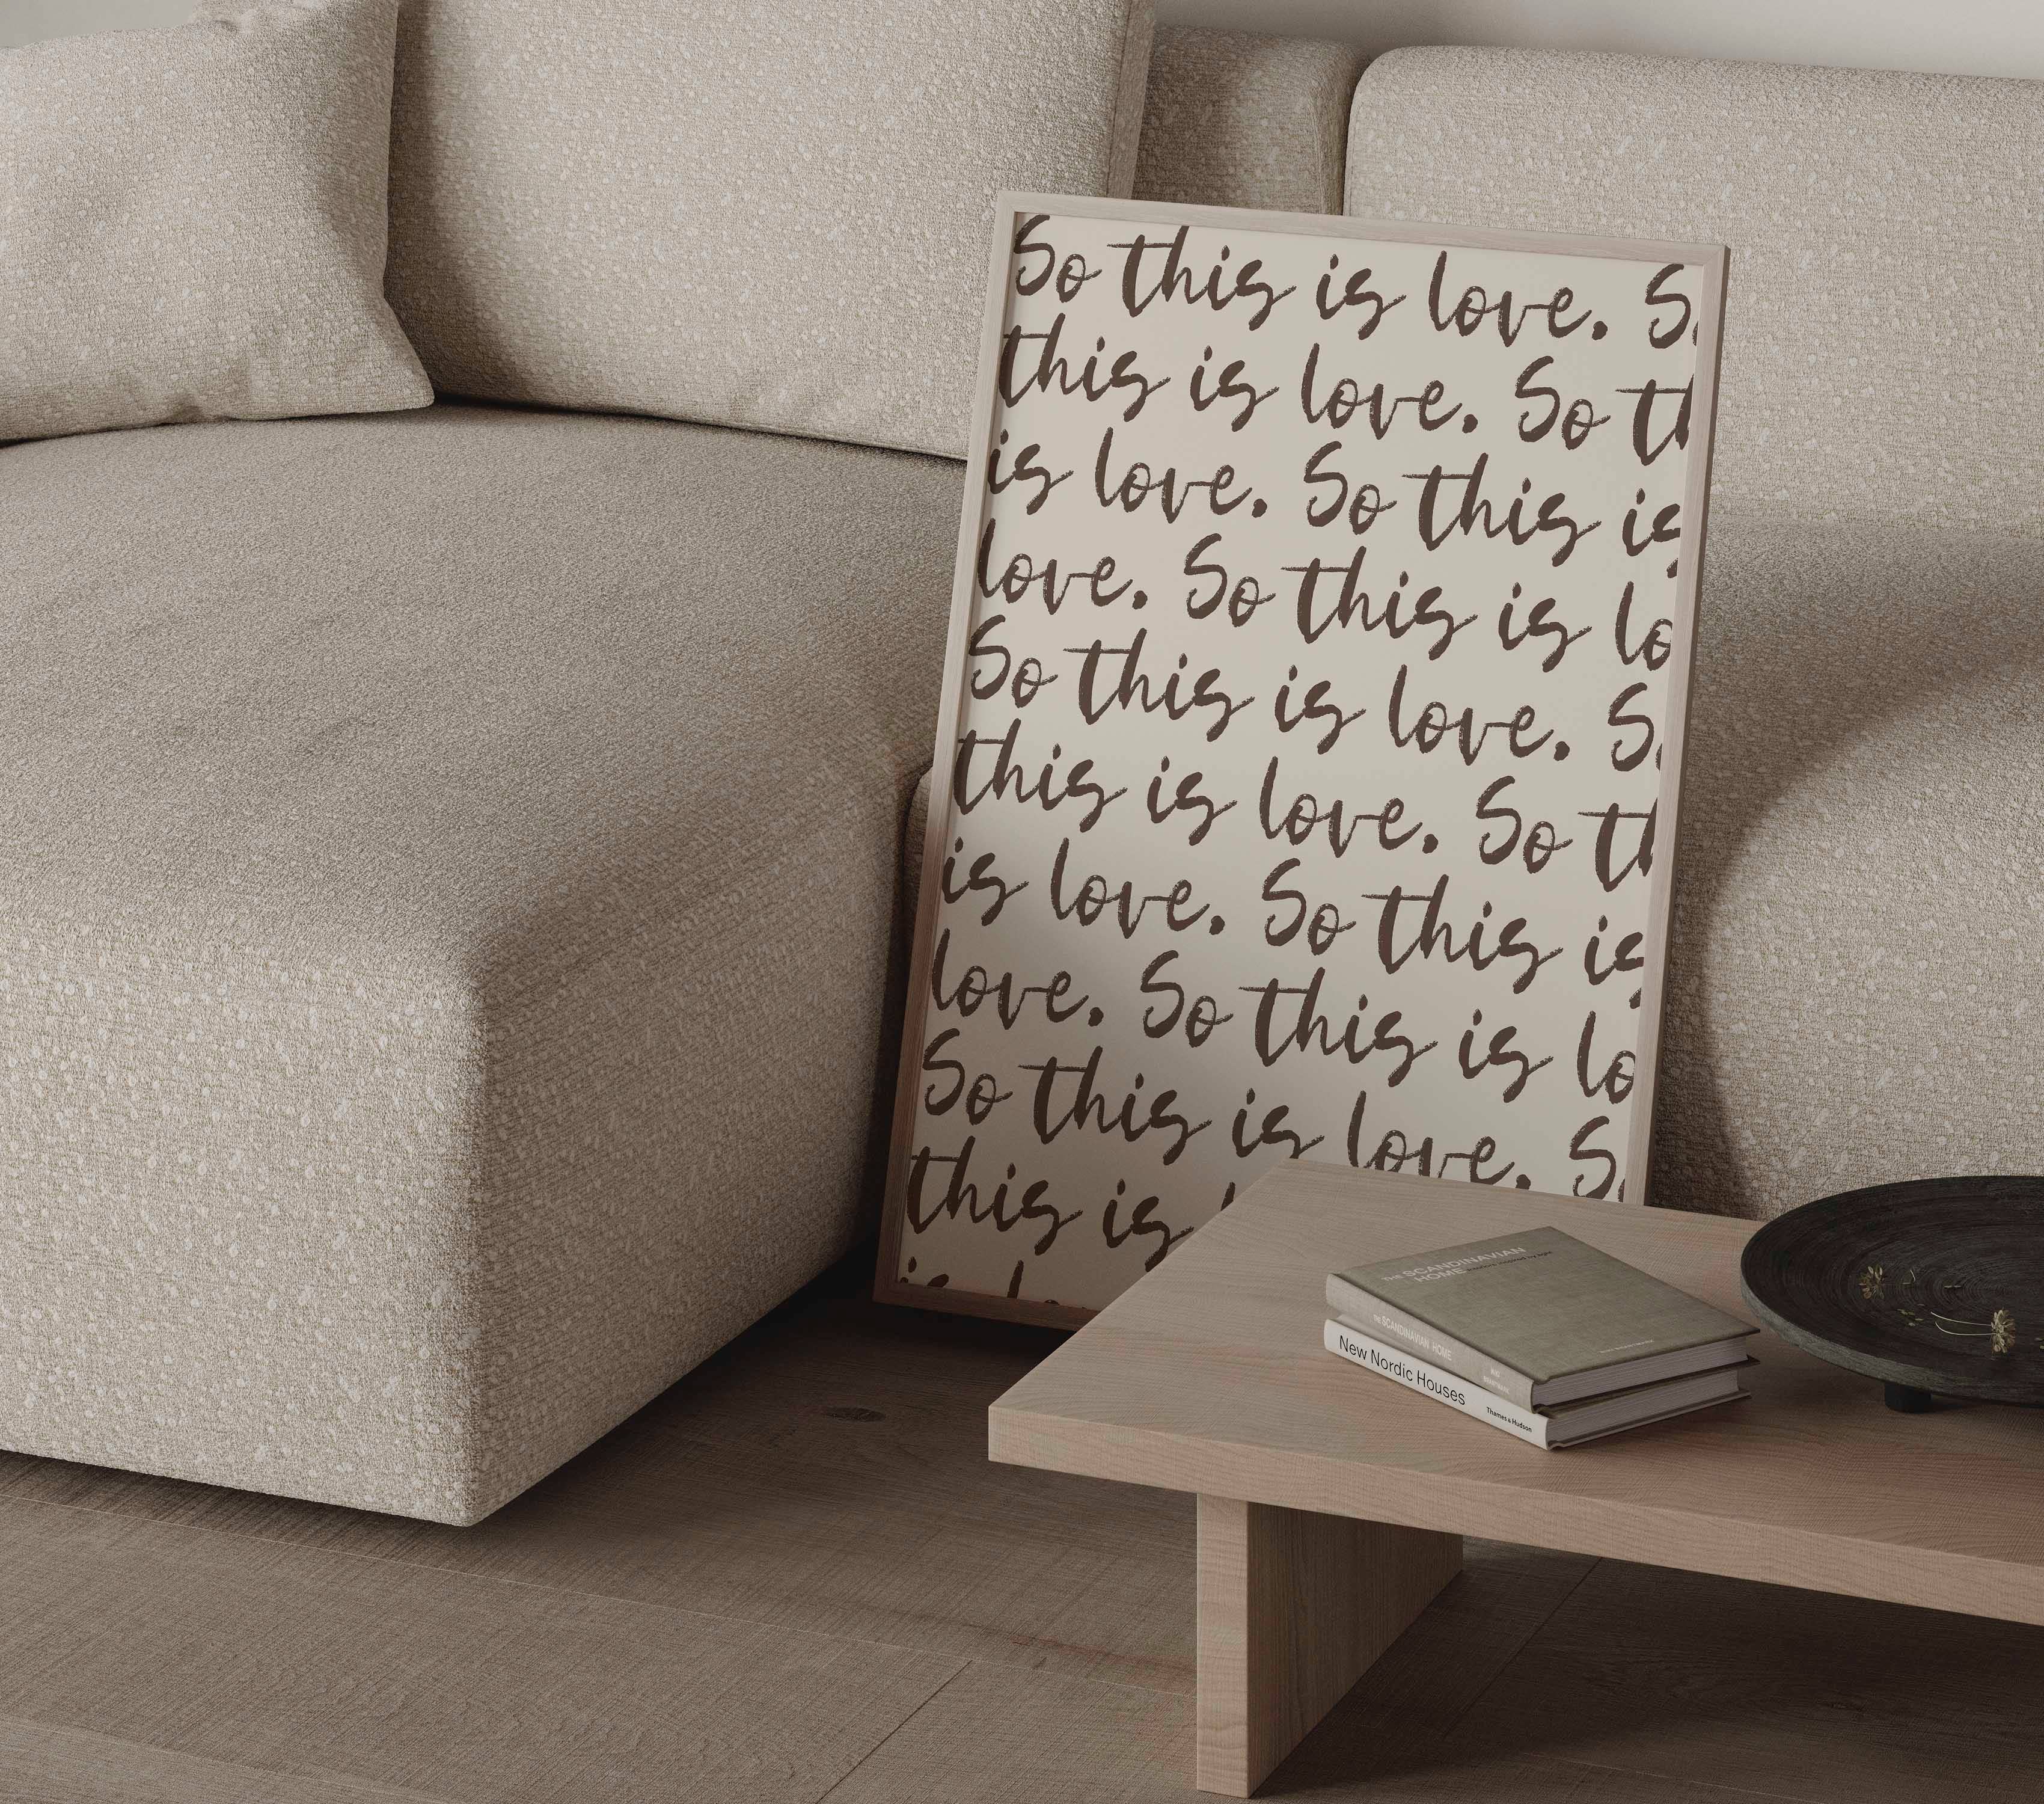 So this is love. S
this is love. So th
is love. So this is
love. So this is lo
So this is love. S
this is love. So th
is love. So this is
love. So this is lo
So this is love. S
this is
THE SCANDINAVIAN
HOME
THE SCANDINAVIAN HOME
New Nordic Houses
Thames & Hudson